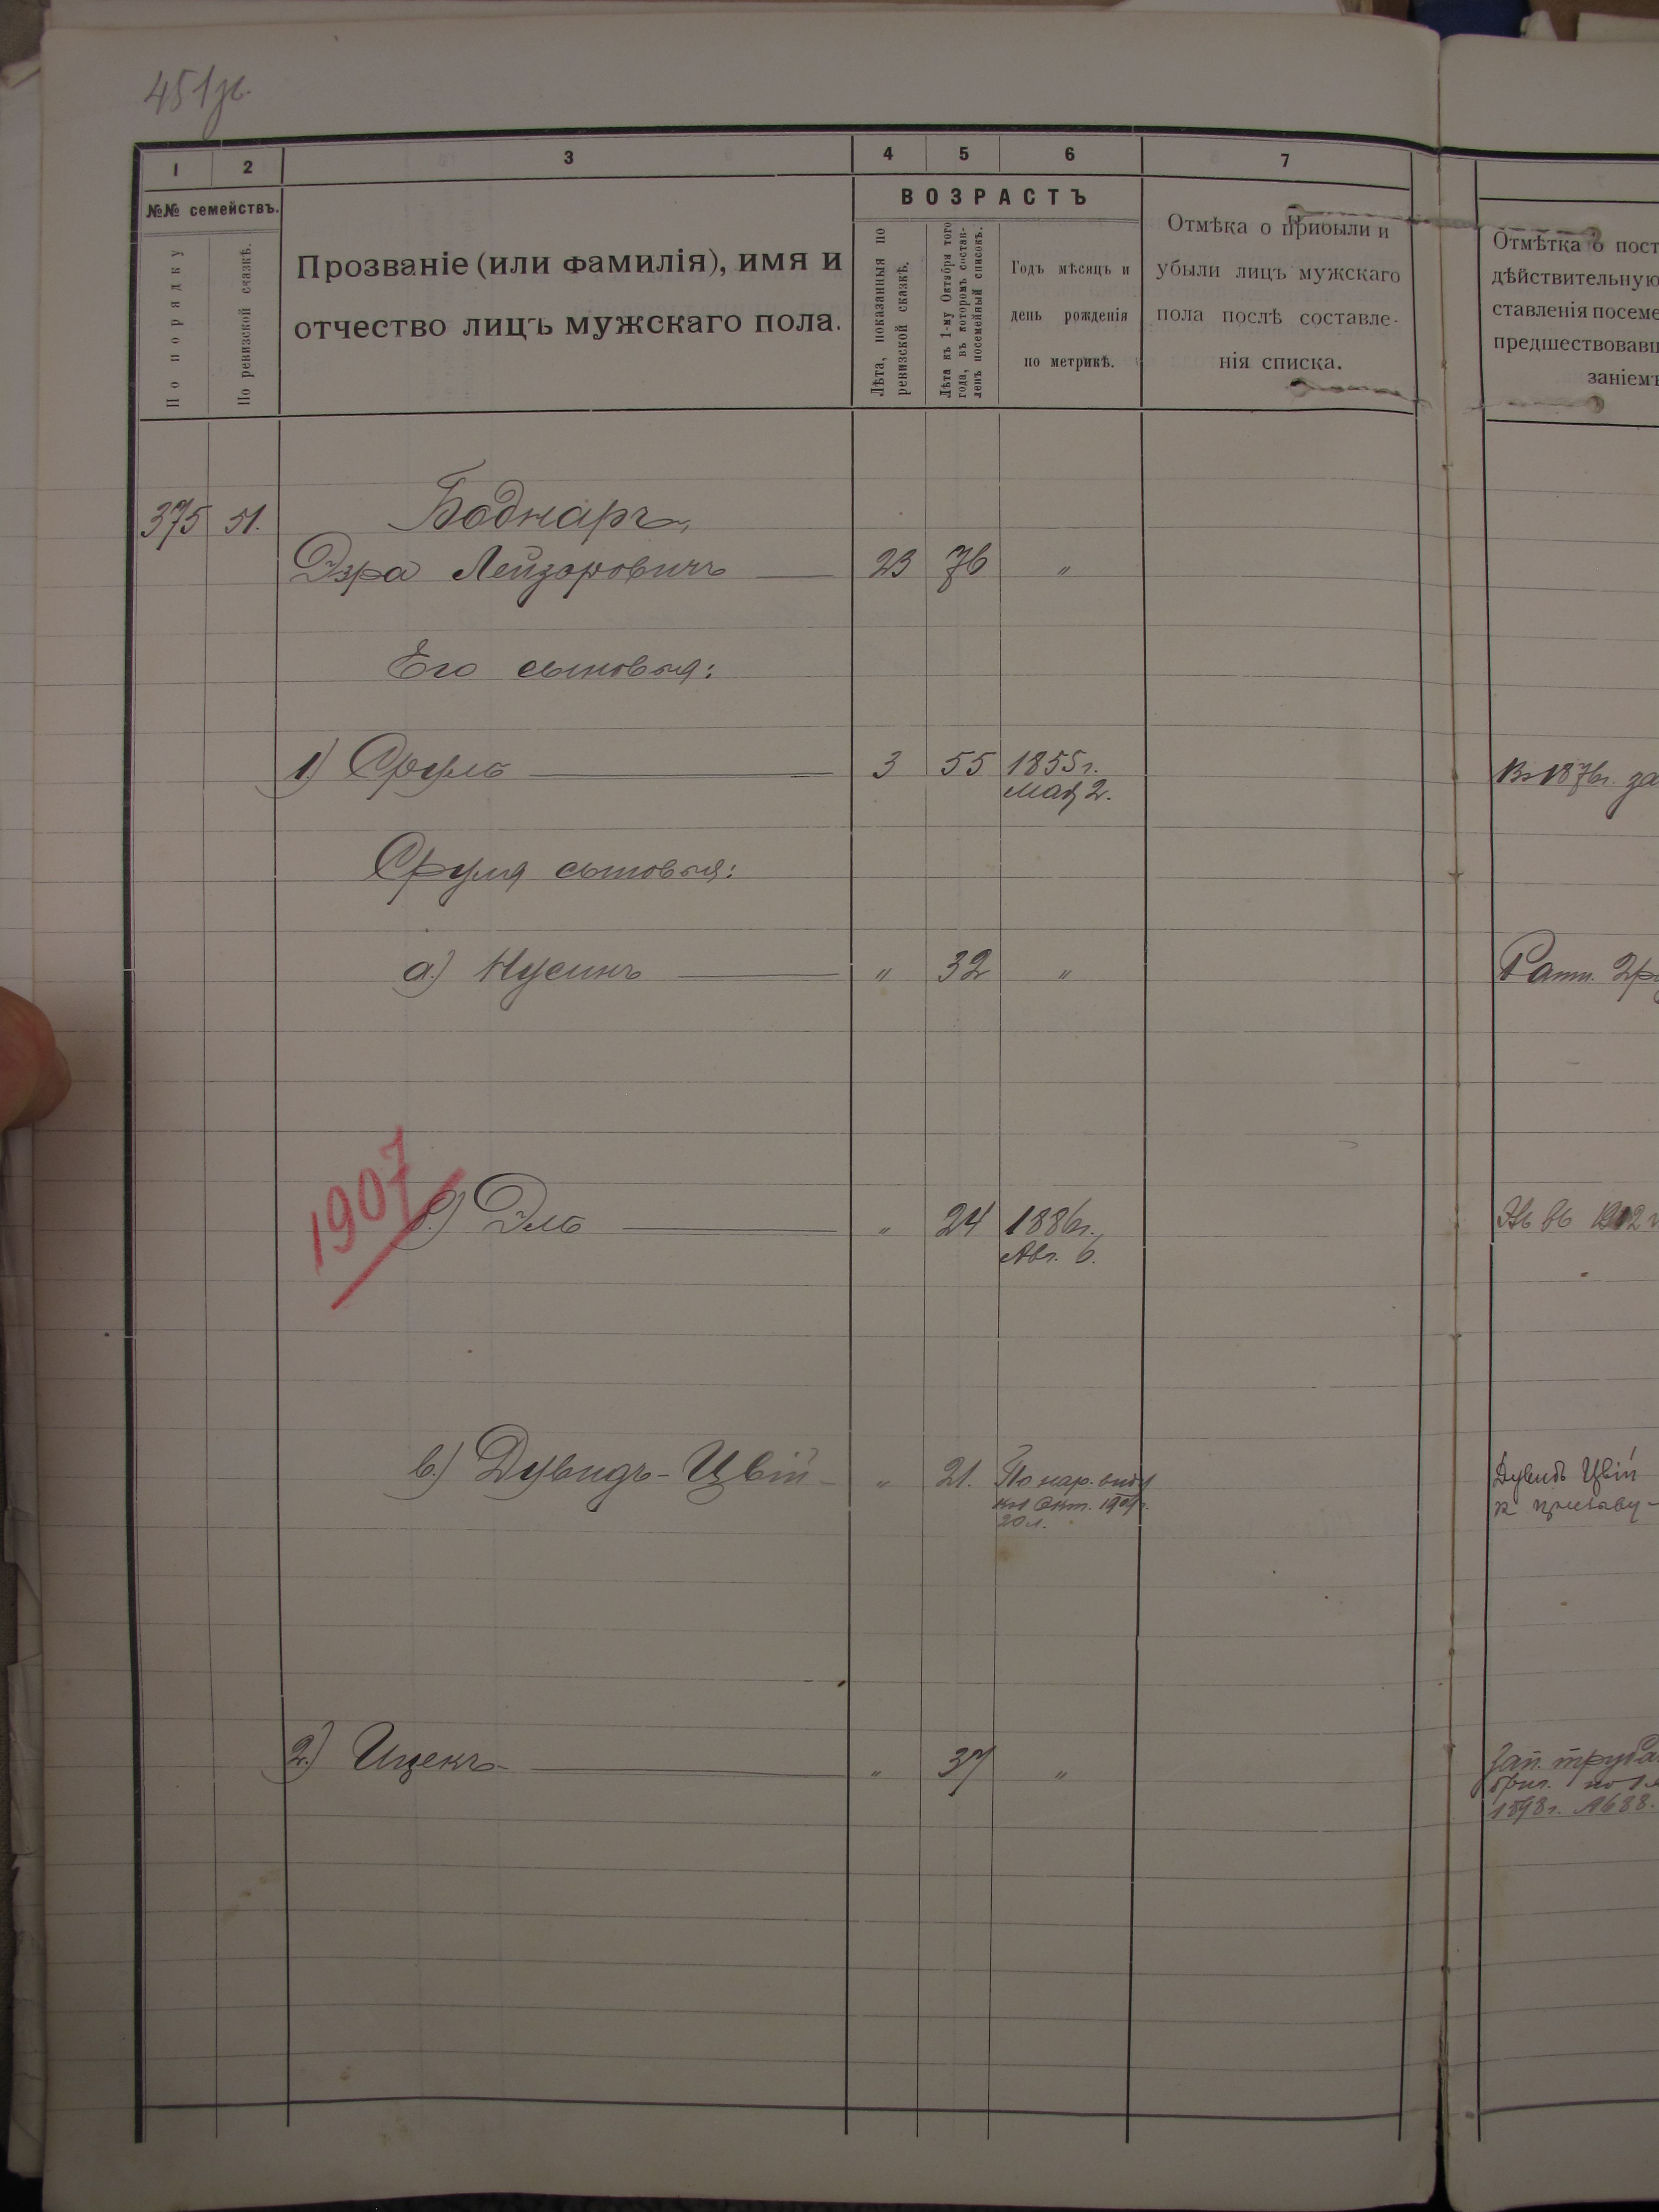 451
1 2 3 4 5 6 7
№№ семействъ.
По порядку
По ревизской сказкѣ.
Прозваніе (или фамилія), имя и
отчество лицъ мужскаго пола.
ВОЗРАСТЪ
Лѣта, показанныя по
ревизской сказкѣ.
Лѣта къ 1-му Октября того
года, въ которомъ состав-
ленъ посемейный списокъ.
Годъ мѣсяцъ и
день рожденія
по метрикѣ.
Отмѣка о прибыли и
убыли лицъ мужскаго
пола послѣ составле-
нія списка.
Отмѣтка о пост
дѣйствительную
ставленія посеме
предшествовавш
заніемъ
375 51. Боднаръ,
Эзра Лейзоровичъ 23 76 "
Его сыновья:
1) Сруль 3 55 1855г.
Мая 2.
Въ 1876г. за
Сруля сыновья:
а) Нусинъ " 32 "
Ратн. 2 р
1907
б) Эль " 24 1886г.
Авг. 6.
1912
в) Дувидъ-Цвій " 21. По нар. виду
къ 1 Окт. 1909г.
20 л.
Дувидъ Цвій
къ призыву-
2) Ицекъ " 37 "
Зап.
1898г. №688.